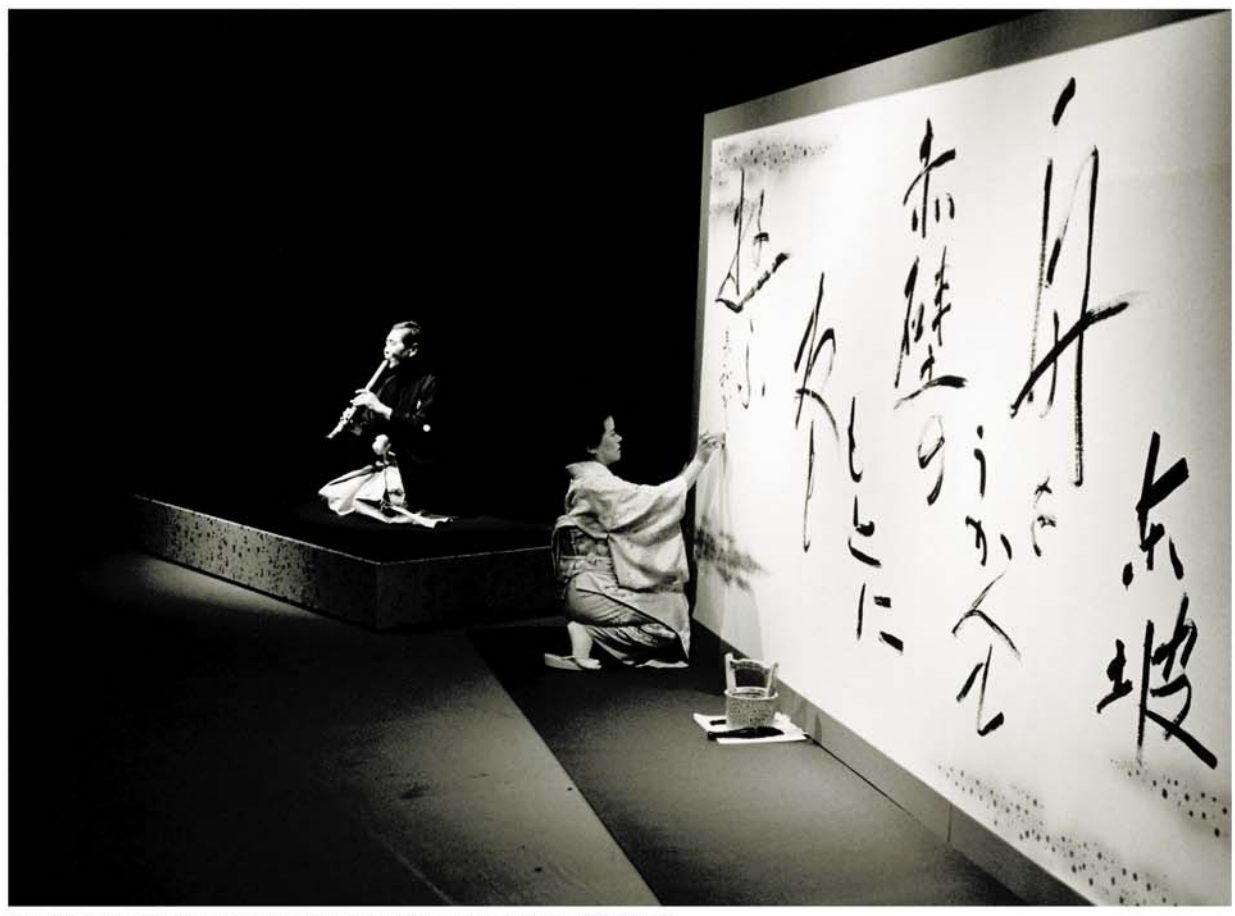 東坡
舟を
うかへて
赤壁の
もとに
遊ふ